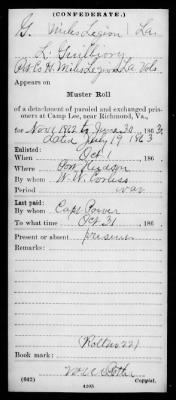 (CONFEDERATE.)
G. Miles Legion La.
L.
Pvt Co H. Miles Legion La. Vols.
Appears on
Muster Roll
of a detachment of paroled and exchanged pris-
oners at Camp Lee, near Richmond, Va.,
for Nov 1 1862 to June 30, 1863.
dated July 19 1863
Enlisted:
When Oct 1, 186
Where Port Hudson
By whom W. W. Corless
Period war
Last paid:
By whom Capt Power
To what time Oct 31, 186
Present or absent present
Remarks:
Roll no 221
Book mark:
(642) 4205 Copyist.